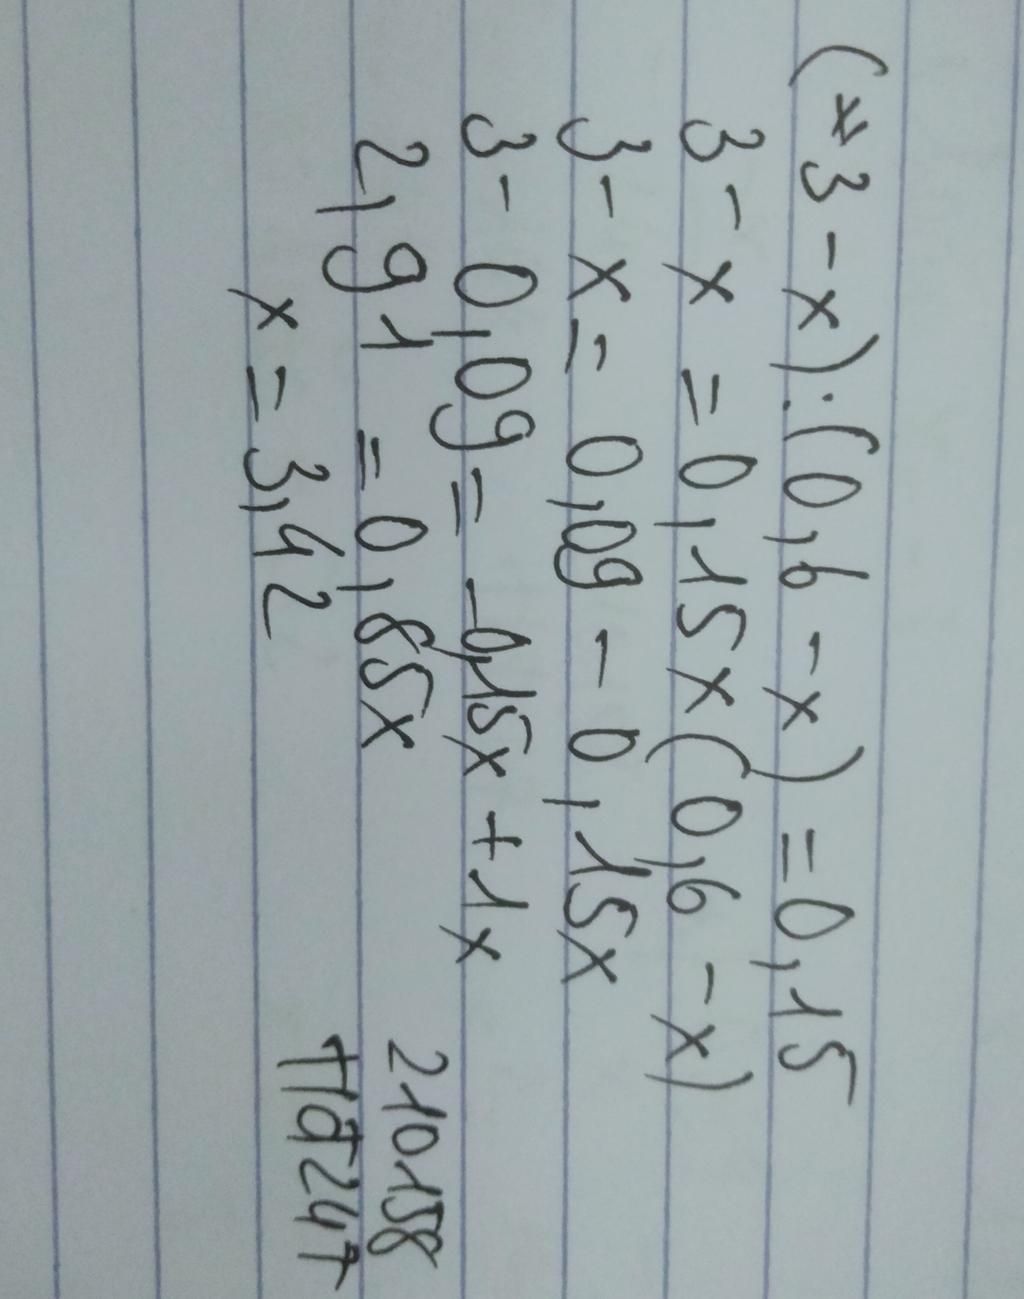 (3-x):(0,6-x)=0,15
3-x=0,15x(0,6-x)
3-x=0,09-0,15x
3-0,09=-0,15x+1x
2,91=0,85x
x=3,42
210158